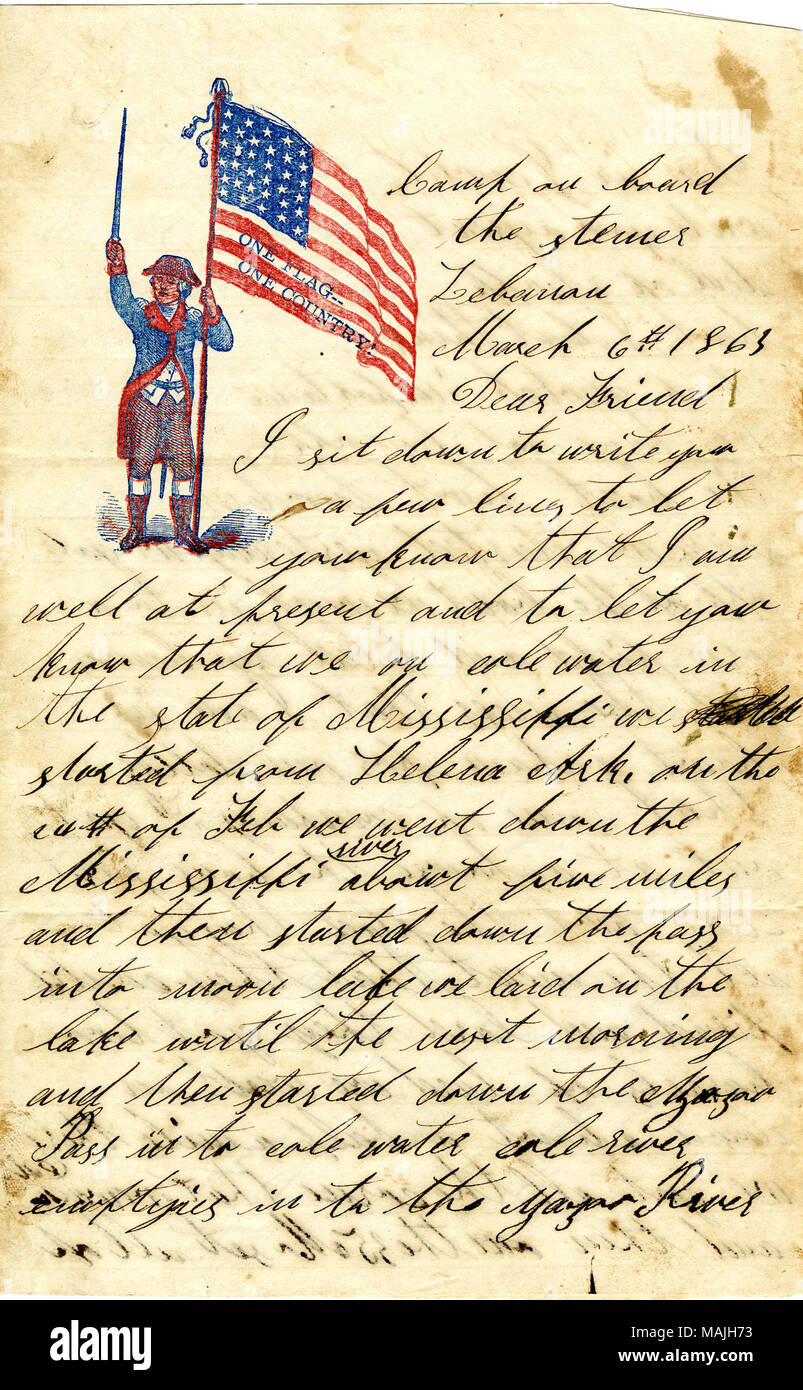 ONE FLAG--
ONE COUNTRY!
Camp on board
the stemer
Lebanon
March 6th 1863
Dear Friend
I sit down to write you
a few lines to let
you know that I am
well at present and to let you
know that we on cole water in
the state of Mississippi we
started from Helena Ark. on the
of Feb we went down the
Mississippi river abowt five miles
and then started down the pass
into moon lake we laid on the
lake until the next morning
and then started down the Yazoo
Pass in to cole water cole river
emptyies in to the Yazoo River
alamy
Image ID: MAJH73
www.alamy.com